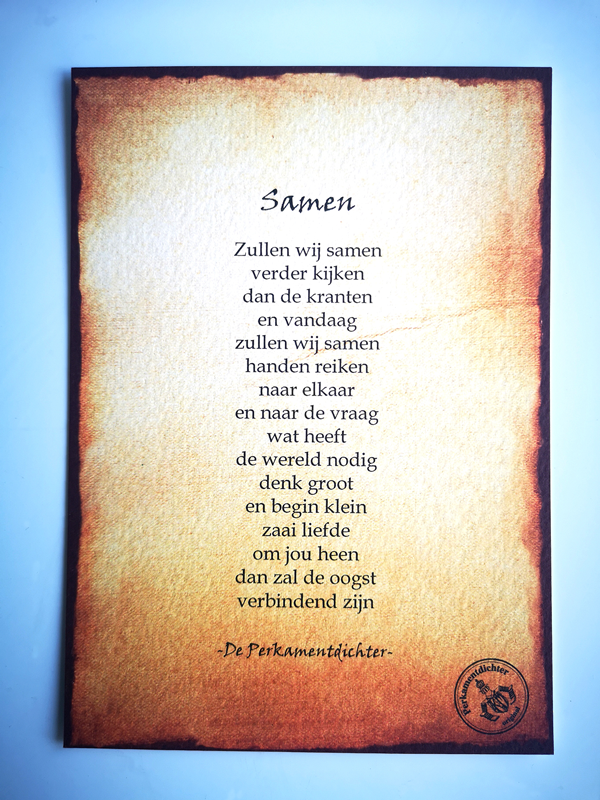 Samen
Zullen wij samen
verder kijken
dan de kranten
en vandaag
zullen wij samen
handen reiken
naar elkaar
en naar de vraag
wat heeft
de wereld nodig
denk groot
en begin klein
zaai liefde
om jou heen
dan zal de oogst
verbindend zijn
-De Perkamentdichter-
Perkamentdichter